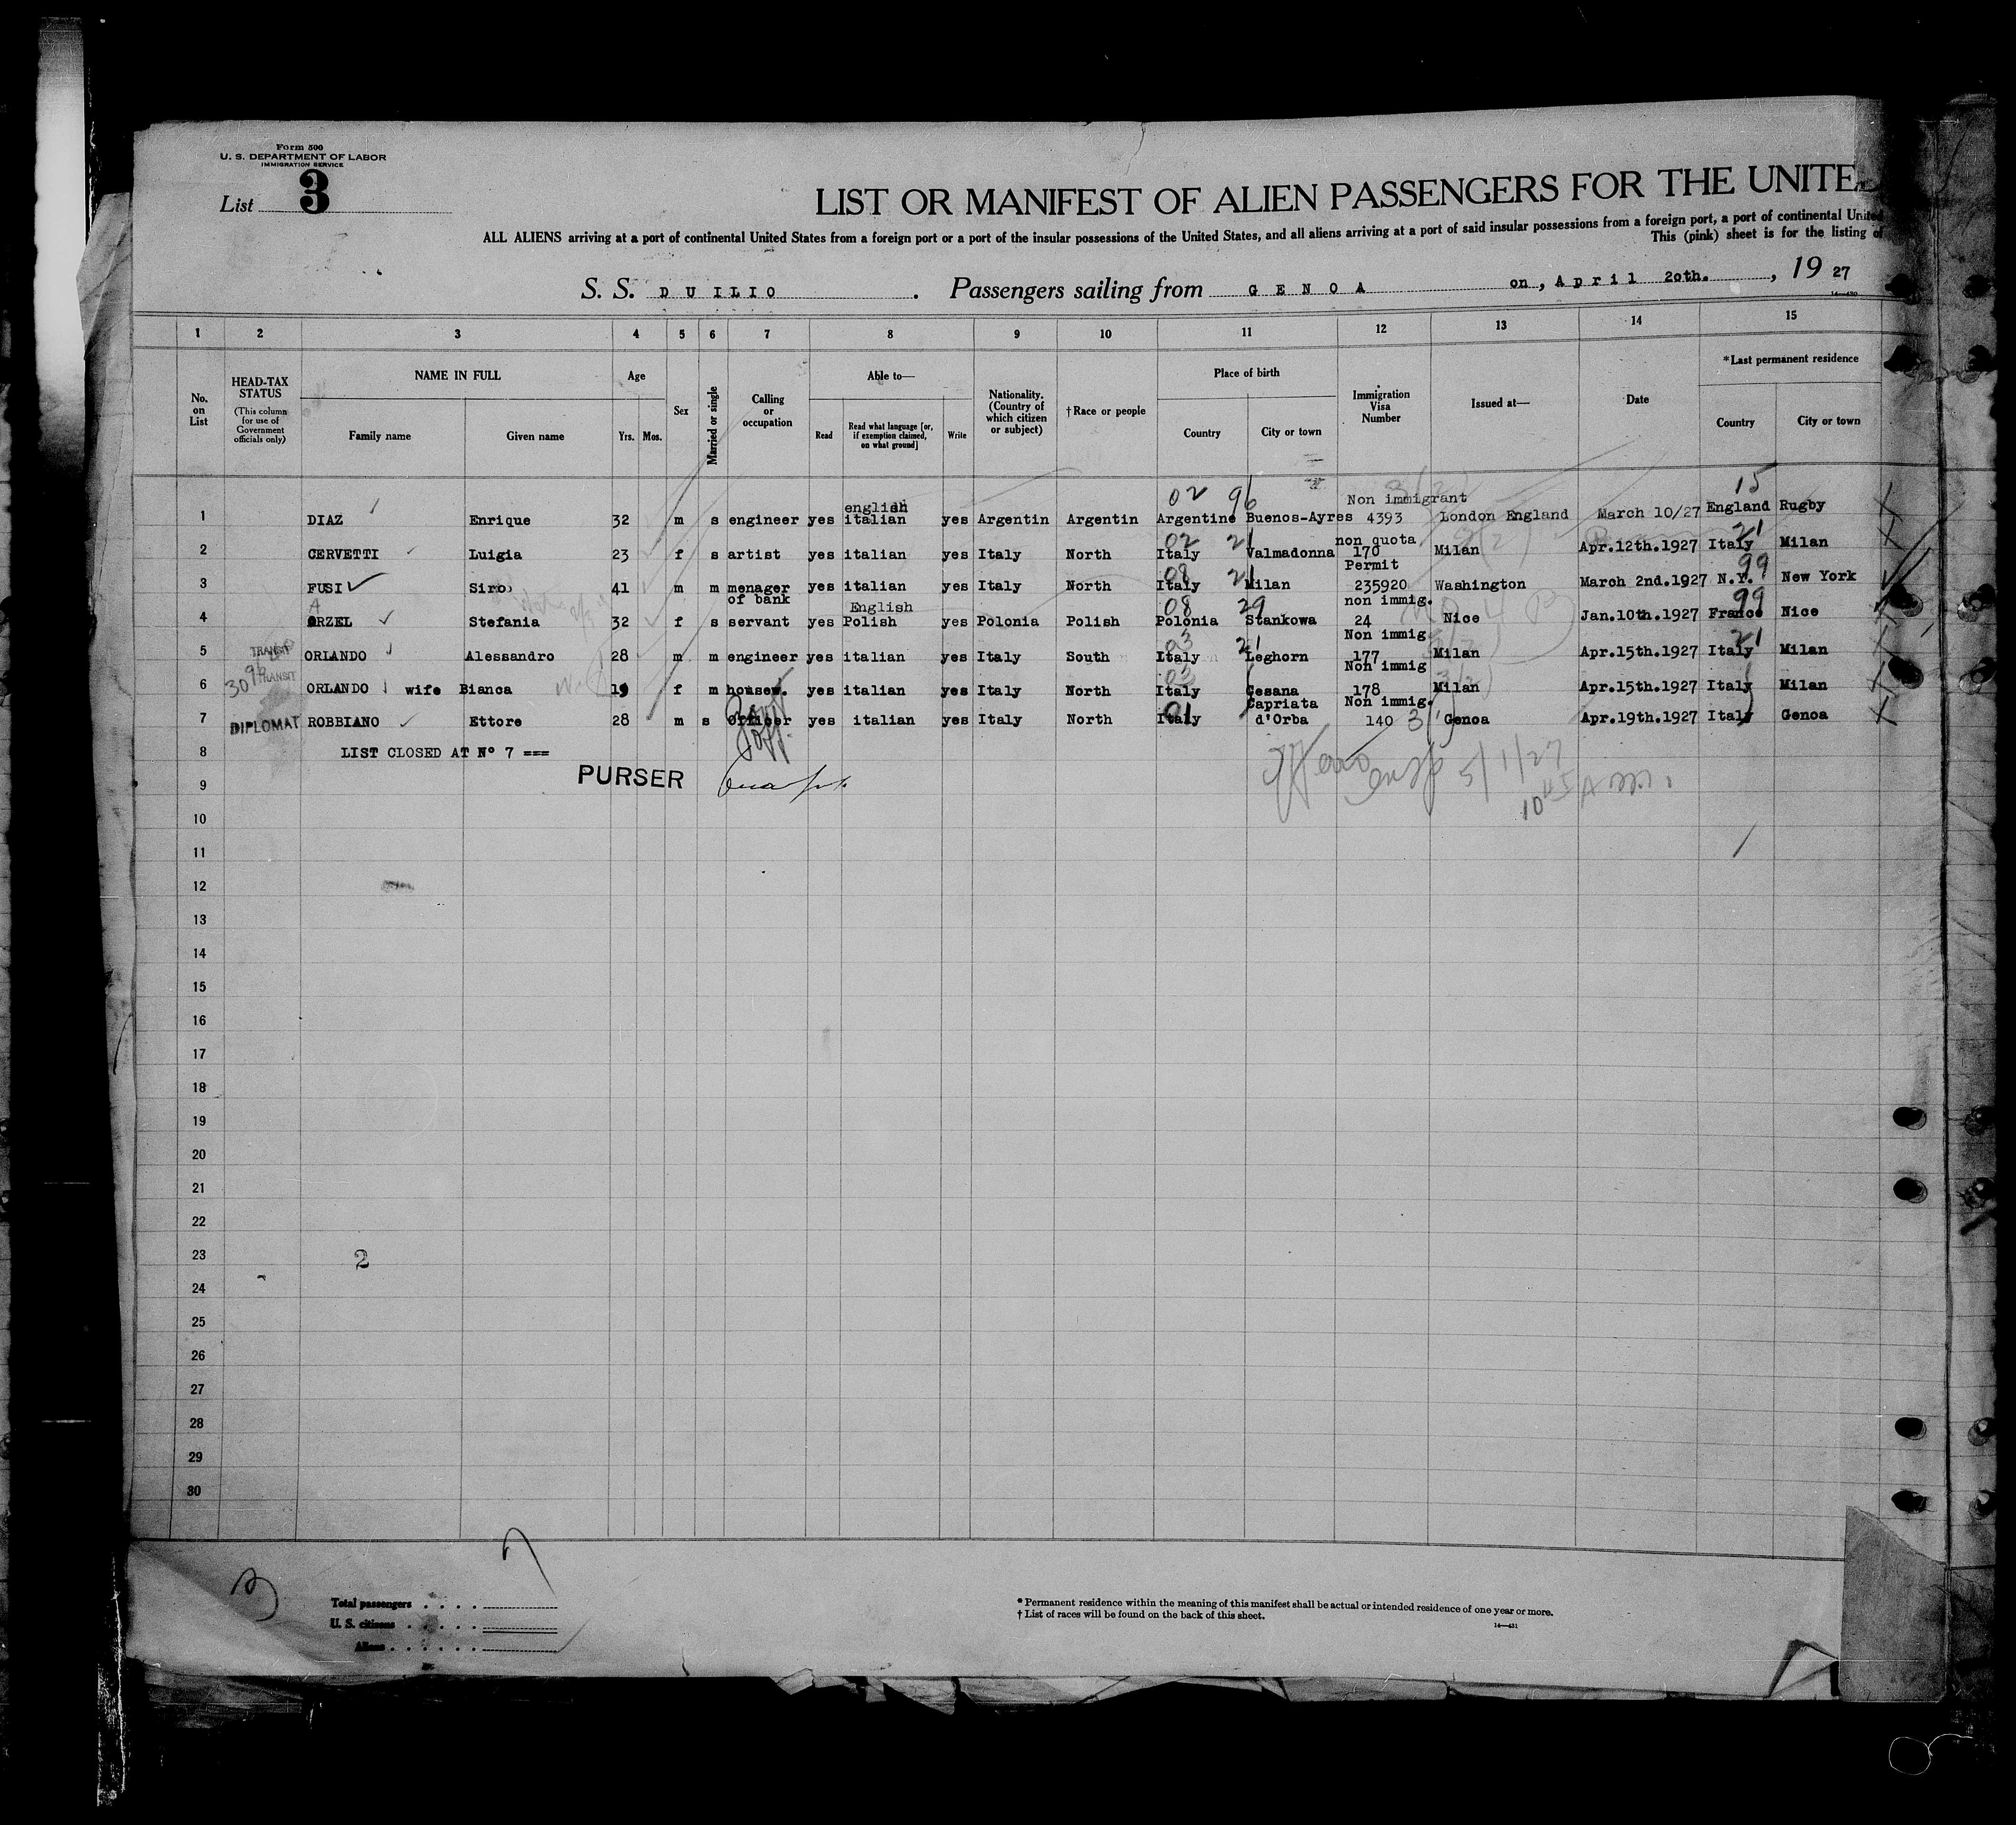 Form 500
U. S. DEPARTMENT OF LABOR
IMMIGRATION SERVICE
List 3
LIST OR MANIFEST OF ALIEN PASSENGERS FOR THE UNITE
ALL ALIENS arriving at a port of continental United States from a foreign port or a port of the insular possessions of the United States, and all aliens arriving at a port of said insular possessions from a foreign port, a port of continental United
This (pink) sheet is for the listing of
S. S. DUILIO . Passengers sailing from GENOA on, April 2oth. , 19 27
1 2 3 4 5 6 7 8 9 10 11 12 13 14 15
No. on List
HEAD-TAX STATUS
(This column for use of Government officials only)
NAME IN FULL
Family name Given name
Age
Yrs. Mos.
Sex
Married or single
Calling or occupation
Able to—
Read
Read what language [or, if exemption claimed, on what ground]
Write
Nationality. (Country of which citizen or subject)
†Race or people
Place of birth
Country City or town
Immigration Visa Number
Issued at—
Date
*Last permanent residence
Country City or town
02 96 15
english Non immigrant
1 DIAZ Enrique 32 m s engineer yes italian yes Argentin Argentin Argentine Buenos-Ayres 4393 London England March 10/27 England Rugby
02 21 non quota 21
2 CERVETTI Luigia 23 f s artist yes italian yes Italy North Italy Valmadonna 170 Milan Apr.12th.1927 Italy Milan
08 21 Permit 99
3 FUSI Siro 41 m m menager of bank yes italian yes Italy North Italy Milan 235920 Washington March 2nd.1927 N.Y. New York
A English 08 29 non immig. 99
4 ORZEL Stefania 32 f s servant yes Polish yes Polonia Polish Polonia Stankowa 24 Nice Jan.10th.1927 France Nice
TRANSIT 03 21 Non immig 21
5 ORLANDO Alessandro 28 m m engineer yes italian yes Italy South Italy Leghorn 177 Milan Apr.15th.1927 Italy Milan
TRANSIT 03 Non immig
6 ORLANDO wife Bianca 19 f m housew. yes italian yes Italy North Italy Cesana 178 Milan Apr.15th.1927 Italy Milan
DIPLOMAT 01 Capriata Non immig.
7 ROBBIANO Ettore 28 m s Officer yes italian yes Italy North Italy d'Orba 140 Genoa Apr.19th.1927 Italy Genoa
8 LIST CLOSED AT No 7 ===
9 PURSER
5/1/27
10 45 A m.
10
11
12
13
14
15
16
17
18
19
20
21
22
23 2
24
25
26
27
28
29
30
Total passengers
U. S. citizens
Aliens
* Permanent residence within the meaning of this manifest shall be actual or intended residence of one year or more.
† List of races will be found on the back of this sheet.
14—431